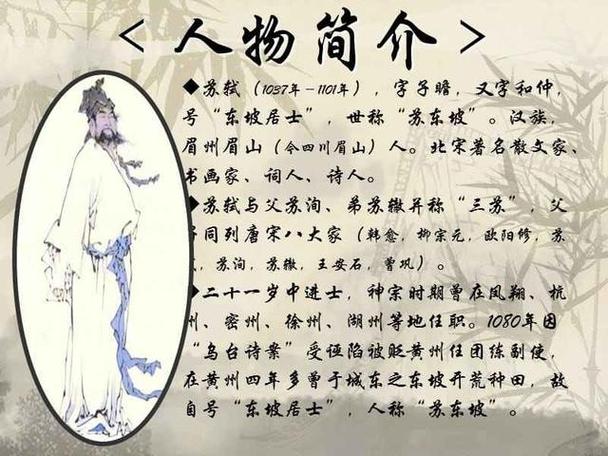 <人物简介>
◆苏轼（1037年－1101年），字子瞻，又字和仲，
号“东坡居士”，世称“苏东坡”。汉族，
眉州眉山（今四川眉山）人。北宋著名散文家、
书画家、词人、诗人。
◆苏轼与父苏洵、弟苏辙并称“三苏”，父
同列唐宋八大家（韩愈，柳宗元，欧阳修，苏
，苏洵，苏辙，王安石，曾巩）。
◆二十一岁中进士，神宗时期曾在凤翔、杭
州、密州、徐州、湖州等地任职。1080年因
“乌台诗案”受诬陷被贬黄州任团练副使，
在黄州四年多曾于城东之东坡开荒种田，故
自号“东坡居士”，人称“苏东坡”。